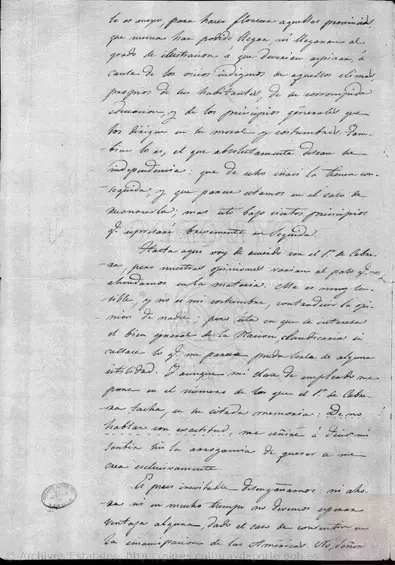 lo es mejor, para hacer florecer aquellas provincias
que nunca han podido llegar ni llegaran al
grado de ilustracion á que deverian aspirar á
causa de los vicios indigenos de aquellos climas
propios de sus habitantes, de su corrompida
educacion, y de los principios generales que
los dirigen en su moral y costumbres. Tam-
bien lo es, el que absolutamente desean su
independencia: que de echo cuasi la tienen con-
seguida y que parece estamos en el caso de
reconocerla; mas esto bajo ciertos principios
q.e expresaré brevemente en seguida.
Hasta aqui voy de acuerdo con el S.r de Cabre-
ra, pero nuestras opiniones varian al paso q.e
ahondamos en la materia. Me es muy sen-
sible, y no es mi costumbre, contradecir la opi-
nion de nadie; pero esta en que se interesa
el bien general de la Nacion claudicaria si
callase lo q.e me parece pueda serla de alguna
utilidad. Y aunque mi clase de empleado me
pone en el número de los que el S.r de Cabre-
ra tacha, en su citada memoria: De no
hablar con exactitud, me ceñiré á decir mi
sentir sin la arrogancia de querer se me
crea exclusivamente.
Es pues inevitable desengañarnos ni aho-
ra ni en mucho tiempo no devemos esperar
ventaja alguna dado el caso de consentir en
la emancipacion de las Américas. No, Señor
© Archivos Estatales, http://pares.culturaydeporte.gob.es